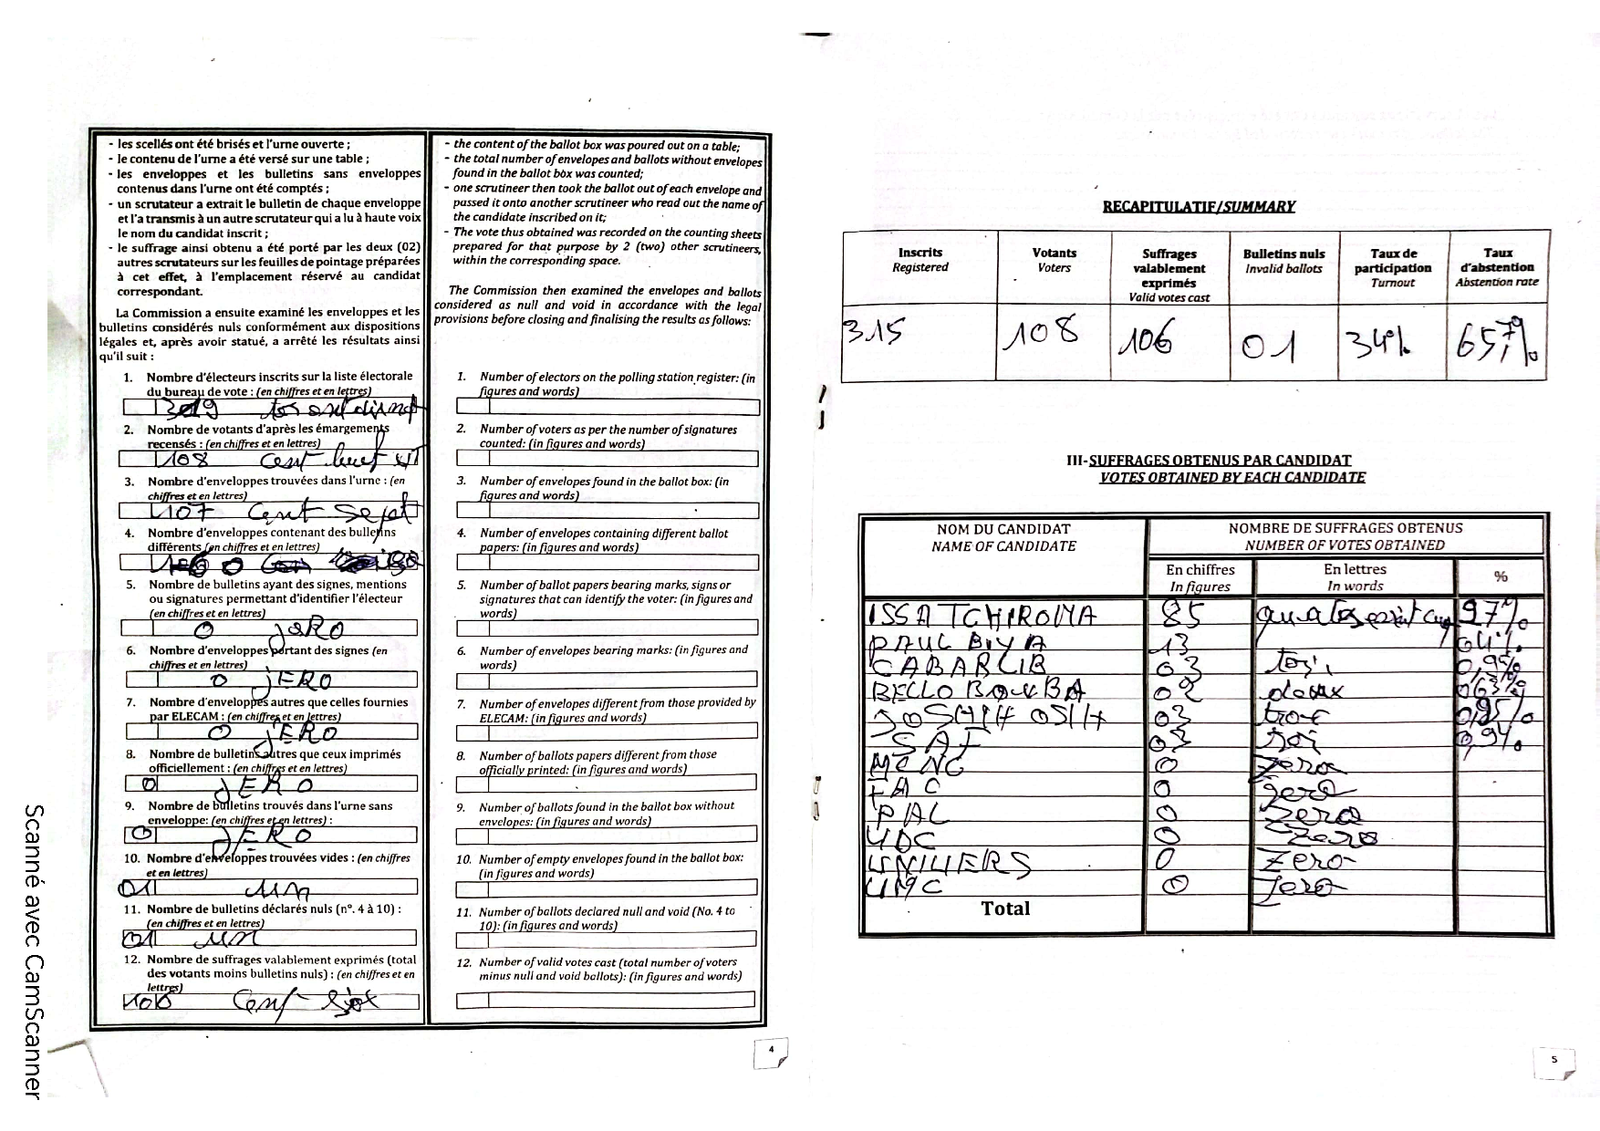 - les scellés ont été brisés et l'urne ouverte ;
- le contenu de l'urne a été versé sur une table ;
- les enveloppes et les bulletins sans enveloppes
contenus dans l'urne ont été comptés ;
- un scrutateur a extrait le bulletin de chaque enveloppe
et l'a transmis à un autre scrutateur qui a lu à haute voix
le nom du candidat inscrit ;
- le suffrage ainsi obtenu a été porté par les deux (02)
autres scrutateurs sur les feuilles de pointage préparées
à cet effet, à l'emplacement réservé au candidat
correspondant.
La Commission a ensuite examiné les enveloppes et les
bulletins considérés nuls conformément aux dispositions
légales et, après avoir statué, a arrêté les résultats ainsi
qu'il suit :
1. Nombre d'électeurs inscrits sur la liste électorale
du bureau de vote : (en chiffres et en lettres)
2. Nombre de votants d'après les émargements
recensés : (en chiffres et en lettres)
108 cent huit
3. Nombre d'enveloppes trouvées dans l'urne : (en
chiffres et en lettres)
107 cent sept
4. Nombre d'enveloppes contenant des bulletins
différents (en chiffres et en lettres)
0
5. Nombre de bulletins ayant des signes, mentions
ou signatures permettant d'identifier l'électeur
(en chiffres et en lettres)
0 jeRO
6. Nombre d'enveloppes portant des signes (en
chiffres et en lettres)
0 jERO
7. Nombre d'enveloppes autres que celles fournies
par ELECAM : (en chiffres et en lettres)
0 jERO
8. Nombre de bulletins autres que ceux imprimés
officiellement : (en chiffres et en lettres)
0 jERO
9. Nombre de bulletins trouvés dans l'urne sans
enveloppe: (en chiffres et en lettres) :
0 jERO
10. Nombre d'enveloppes trouvées vides : (en chiffres
et en lettres)
01 un
11. Nombre de bulletins déclarés nuls (n°. 4 à 10) :
(en chiffres et en lettres)
01 un
12. Nombre de suffrages valablement exprimés (total
des votants moins bulletins nuls) : (en chiffres et en
lettres)
106 cent six
- the content of the ballot box was poured out on a table;
- the total number of envelopes and ballots without envelopes
found in the ballot box was counted;
- one scrutineer then took the ballot out of each envelope and
passed it onto another scrutineer who read out the name of
the candidate inscribed on it;
- The vote thus obtained was recorded on the counting sheets
prepared for that purpose by 2 (two) other scrutineers,
within the corresponding space.
The Commission then examined the envelopes and ballots
considered as null and void in accordance with the legal
provisions before closing and finalising the results as follows:
1. Number of electors on the polling station register: (in
figures and words)
2. Number of voters as per the number of signatures
counted: (in figures and words)
3. Number of envelopes found in the ballot box: (in
figures and words)
4. Number of envelopes containing different ballot
papers: (in figures and words)
5. Number of ballot papers bearing marks, signs or
signatures that can identify the voter: (in figures and
words)
6. Number of envelopes bearing marks: (in figures and
words)
7. Number of envelopes different from those provided by
ELECAM: (in figures and words)
8. Number of ballots papers different from those
officially printed: (in figures and words)
9. Number of ballots found in the ballot box without
envelopes: (in figures and words)
10. Number of empty envelopes found in the ballot box:
(in figures and words)
11. Number of ballots declared null and void (No. 4 to
10): (in figures and words)
12. Number of valid votes cast (total number of voters
minus null and void ballots): (in figures and words)
4
Scanné avec CamScanner
RECAPITULATIF/SUMMARY
Inscrits Registered
Votants Voters
Suffrages valablement exprimés Valid votes cast
Bulletins nuls Invalid ballots
Taux de participation Turnout
Taux d'abstention Abstention rate
315 108 106 01 34% 65,7%
III-SUFFRAGES OBTENUS PAR CANDIDAT
VOTES OBTAINED BY EACH CANDIDATE
NOM DU CANDIDAT
NAME OF CANDIDATE
NOMBRE DE SUFFRAGES OBTENUS
NUMBER OF VOTES OBTAINED
En chiffres
In figures
En lettres
In words
%
ISSA TCHIROMA 85
PAUL BIYA 13
CABARLIB 03 0,95%
BELLO BOUBA 02 deux 0,63%
JOSHUA OSIH 03 0,95%
SAF 03
MCNC 0 zero
FAC 0 zero
PAL 0 zero
UDC 0 zero
UNIVERS 0 zero
UMC 0 zero
Total
5